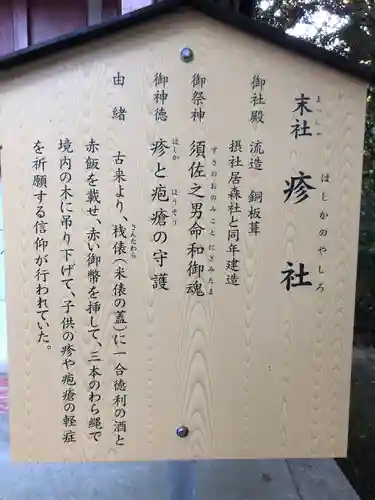 末社 疹社
まっしゃ はしかのやしろ
御社殿 流造 銅板葺
摂社居森社と同年建造
御祭神 須佐之男命和御魂
すさのおのみこと にぎみたま
御神徳 疹と疱瘡の守護
はしか ほうそう
由緒 古来より、桟俵(米俵の蓋)に一合徳利の酒と
さんだわら
赤飯を載せ、赤い御幣を挿して、三本のわら縄で
境内の木に吊り下げて、子供の疹や疱瘡の軽症
を祈願する信仰が行われていた。